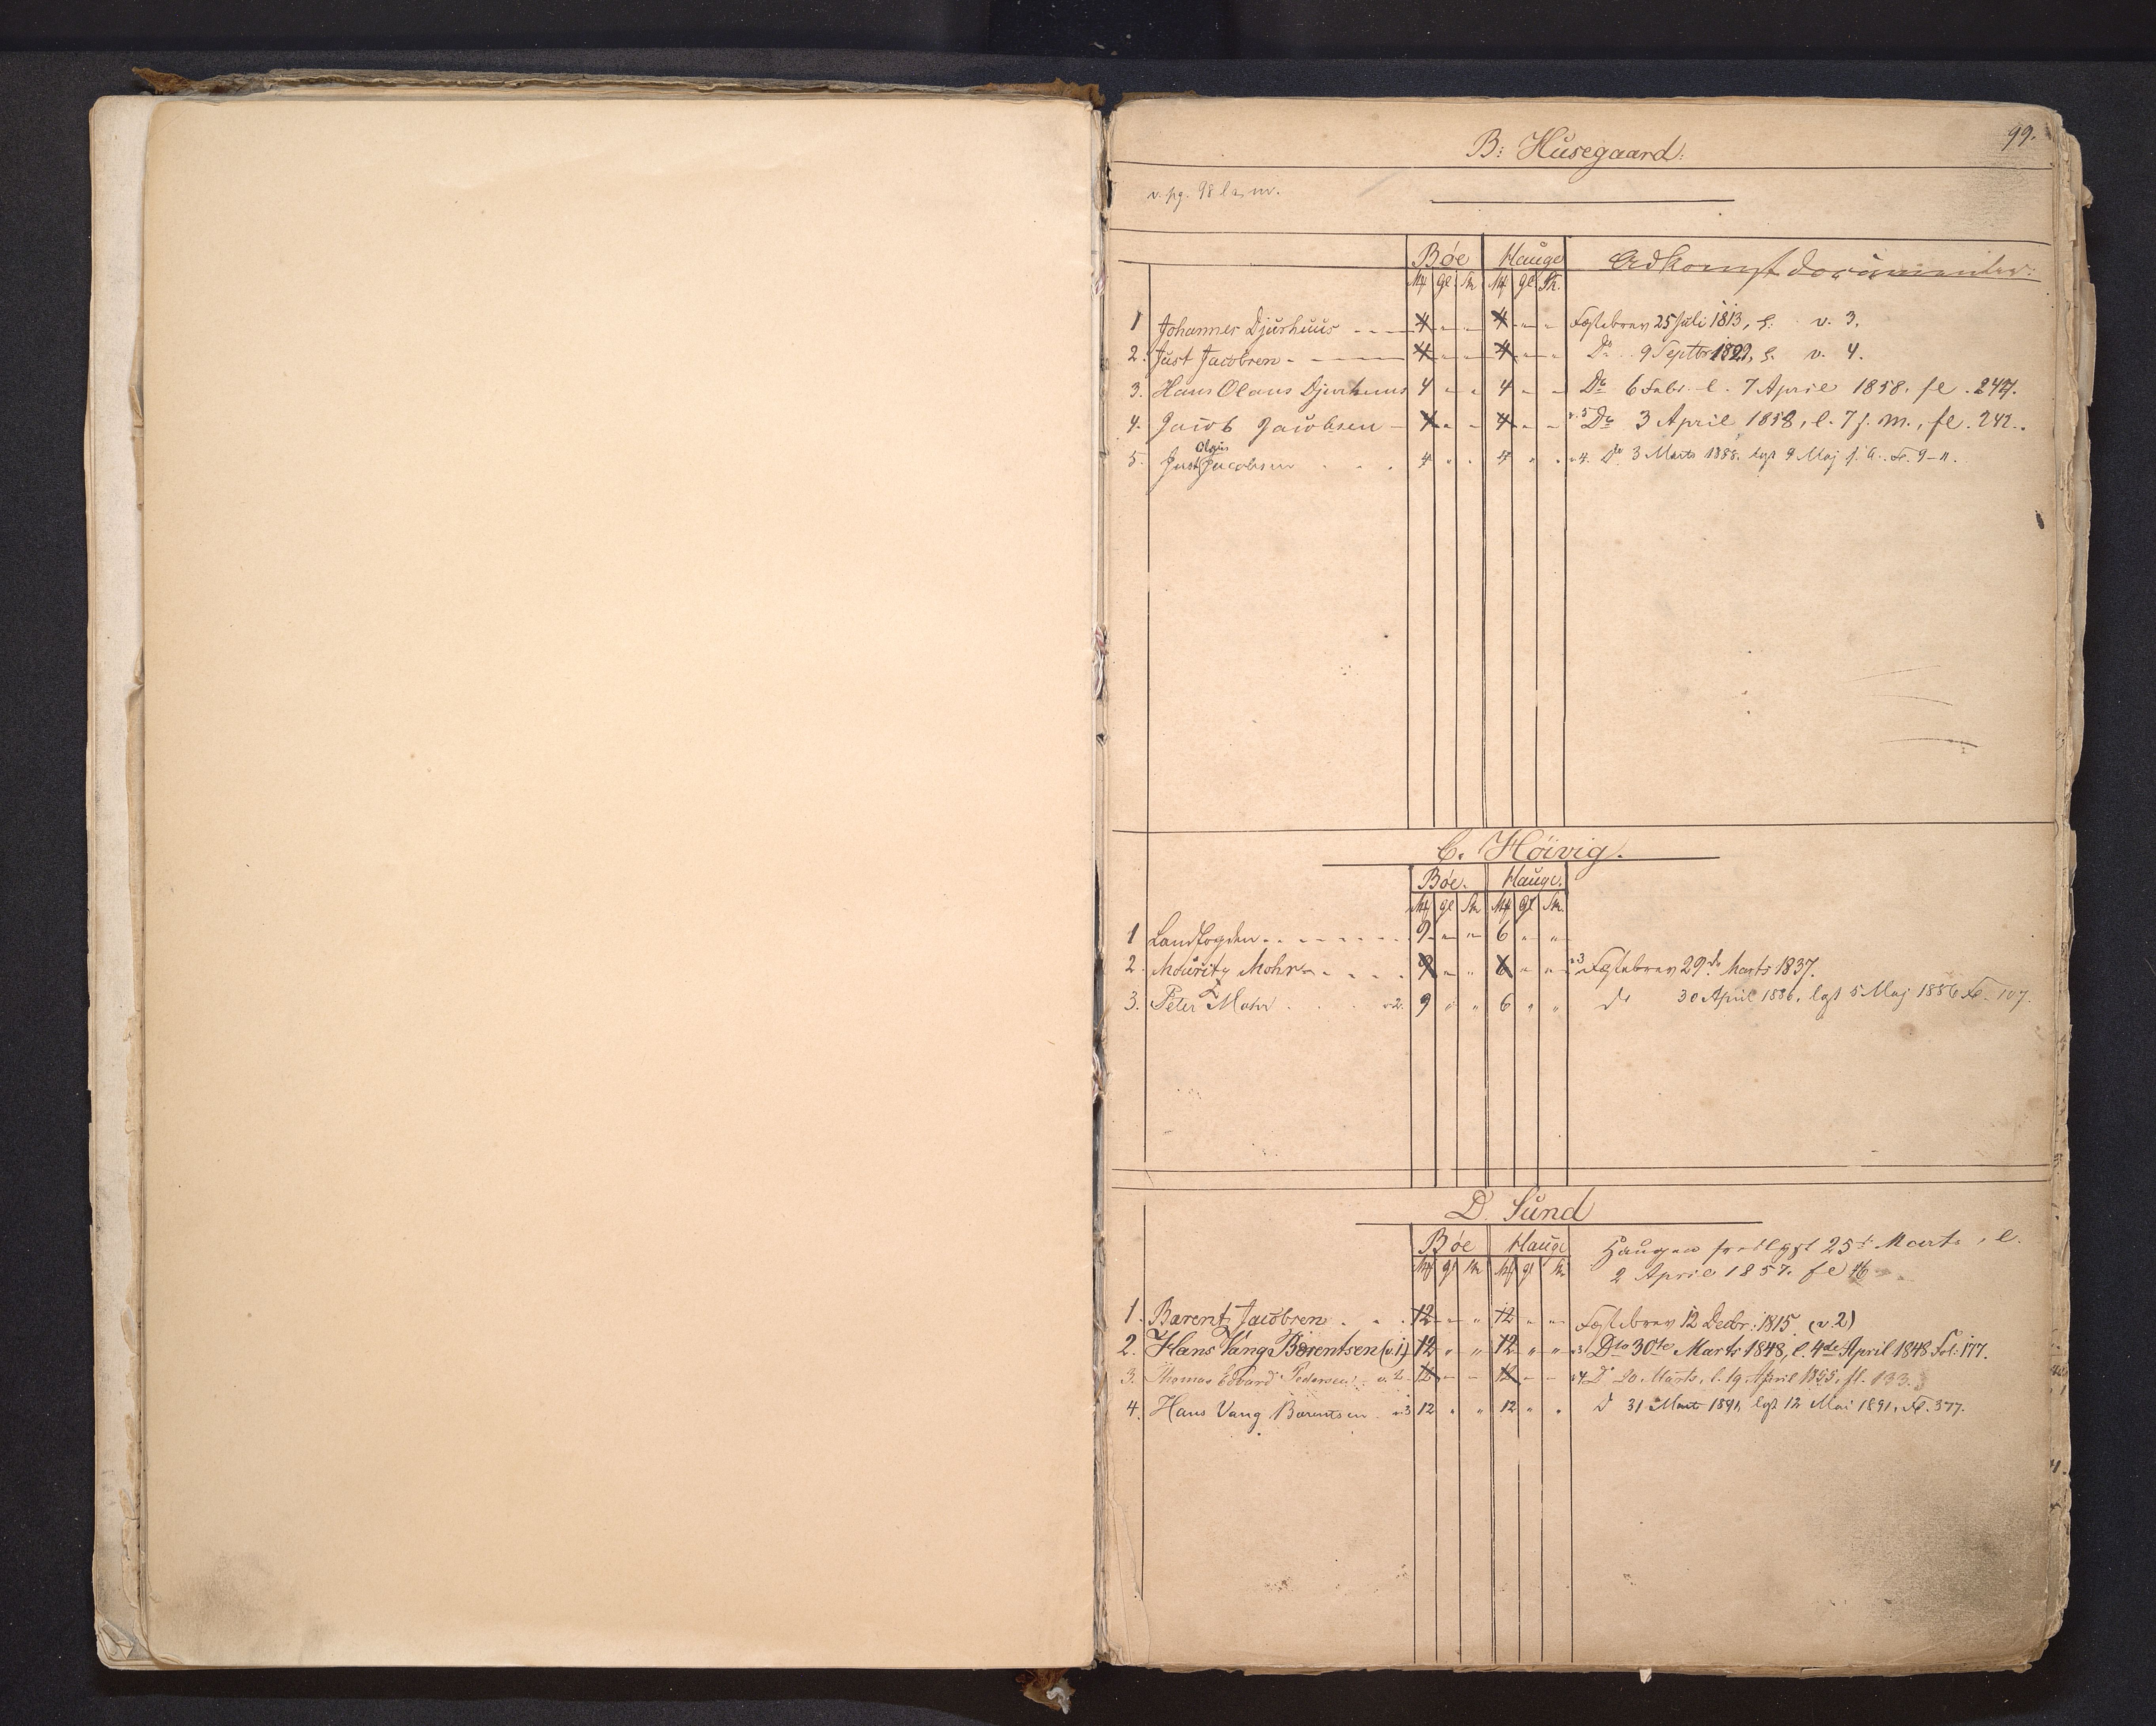 99.
B: Husegaard:
v. pg. 98 l. a. m.
Bøe Hauge Adkomst documenter:
Mk Gl Sk Mk Gl Sk.
1 Johannes Djurhuus - - - 4 " " 4 " " Fæstebrev 25 Juli 1813, v. 3.
2. Just Jacobsen - - - 4 " " 4 " " Do 9 Septbr 1829, v. 4.
3. Hans Olaus Djurhuus 4 " " 4 " " Do 6 Febr. l. 7 April 1858. fl. 247.
4. Jacob Jacobsen - 4 " " 4 " " v. 5 Do 3 April 1858, l. 7 s. m., fl. 242.
5. Just Olaus Jacobsen . . . 4 " " 4 " " v 4. Do 3 Marts 1888. lgst 9 Maj s. A. Fl. 9-11.
C. Höivig.
Bøe. Hauge.
Mk gl Sk Mk Gl Sk.
1 Landfogden - - - 9 " " 6 " "
2. Mouritz Mohr - - - 9 " " 6 " " v 3 Fæstebrev 29de Marts 1837.
3. Peter Mohr . . . v 2. 9 " " 6 " " do 30 April 1886. lgst 5 Maj 1886 Fl. 107.
D. Sund
Bøe Hauge Haugen fredlyst 25d Marts, l.
Mk gl Sk Mk gl Sk 2 April 1857. fl 46
1. Barent Jacobsen . . . 12 " " 12 " " Fæstebrev 12 Decbr: 1815. (v. 2)
2. Hans Vang Børentsen (v. 1) 12 " " 12 " " v 3 Dto 30te Marts 1848, l. 4de April 1848 Fol: 177.
3. Thomas Edvard Pedersen v. 2 12 " " 12 " " v 4 Do 20 Marts, l. 19 April 1855, fl. 133.
4. Hans Vang Barentsen v 3 12 " " 12 " " D 31 Marts 1891, lgst 12 Mai 1891, Fl. 377.